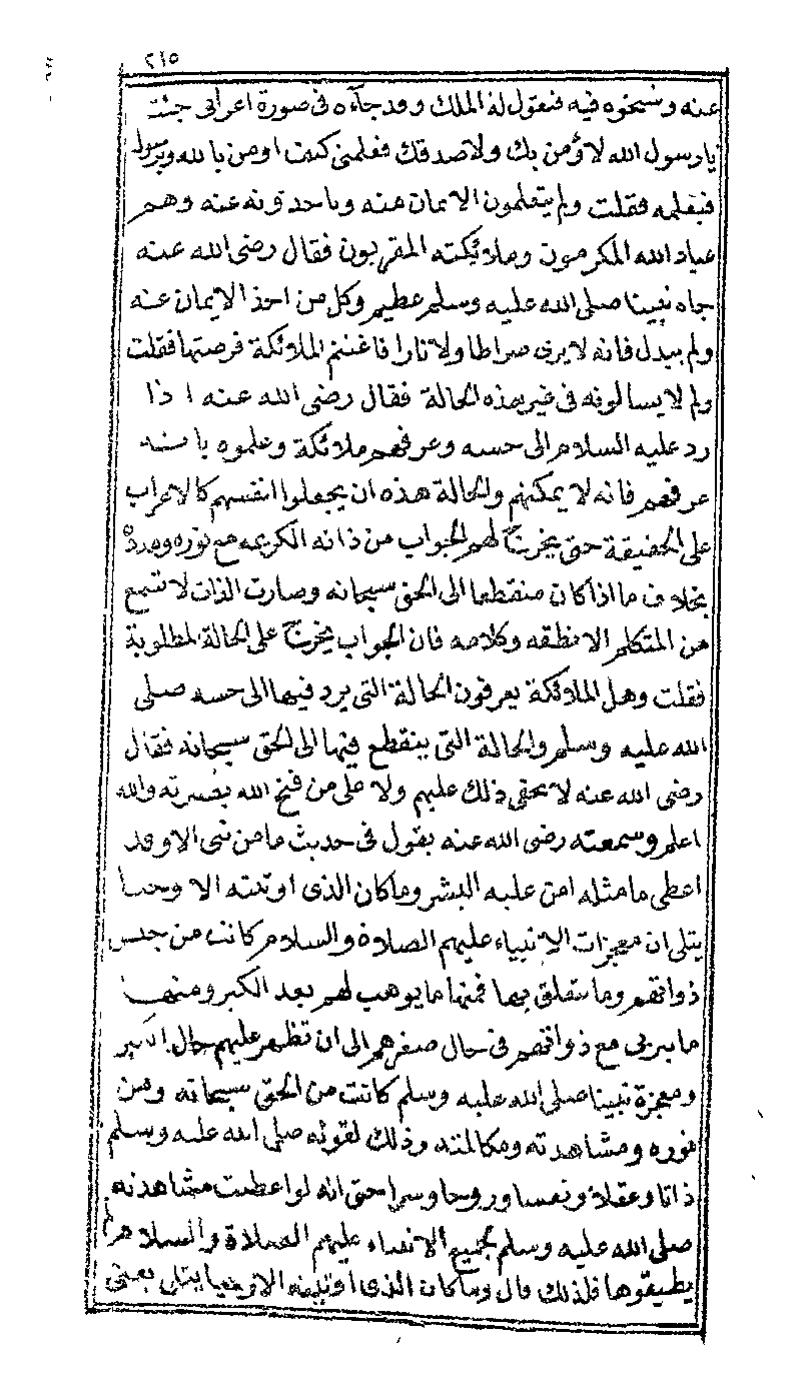 ٢١٥
عنه ونسخوه فيه فنقول له الملك وقد جآءه فى صورة اعرابى جئت
يا رسول الله لاؤمن بك ولاصدقك فعلمنى كيف اومن بالله وبرسوله
فيعلمه فقلت ولم يتعلمون الايمان منه وياخذونه عنه وهم
عباد الله المكرمون وملائكته المقربون فقال رضى الله عنه
جاه نبينا صلى الله عليه وسلم عظيم وكل من اخذ الايمان عنه
ولم يبدل فانه لا يرى صراطا ولا نارا فاغتنم الملائكة فرصتها فقلت
ولم لا يسالونه فى غير هذه الحالة فقال رضى الله عنه اذا
رد عليه السلام الى حسه وعرفهم ملائكة وعلموه بانه
عرفهم فانه لا يمكنهم والحالة هذه ان يجعلوا انفسهم كالاعراب
على الحقيقة حتى يخرج لهم الجواب من ذاته الكريمه مع نوره ومدده
بخلاف ما اذا كان منقطعا الى الحق سبحانه وصارت الذات لا تسمع
من المتكلم الا نطقه وكلامه فان الجواب يخرج على الحالة المطلوبة
فقلت وهل الملائكة يعرفون الحالة التى يرد فيها الى حسه صلى
الله عليه وسلم والحالة التى ينقطع فيها الى الحق سبحانه فقال
رضى الله عنه لا يخفى ذلك عليهم ولا على من فتح الله بصيرته والله
اعلم وسمعته رضى الله عنه يقول فى حديث ما من نبى الا وقد
اعطى ما مثله امن عليه البشر وما كان الذى اوتيته الا وحيا
يتلى ان معجزات الانبياء عليهم الصلاة والسلام كانت من جنس
ذواتهم وما يتعلق بها فمنها ما يوهب لهم بعد الكبر ومنها
ما يربى مع ذواتهم فى حال صغرهم الى ان تظهر عليهم حال الكبر
ومعجزة نبينا صلى الله عليه وسلم كانت من الحق سبحانه ومن
نوره ومشاهدته ومكالمته وذلك لقوته صلى الله عليه وسلم
ذاتا وعقلا ونفسا وروحا وسرا حتى انه لو اعطيت مشاهدته
صلى الله عليه وسلم لجميع الانبياء عليهم الصلاة والسلام لم
يطيقوها فلذلك قال وما كان الذى اوتيته الا وحيا يتلى يعنى